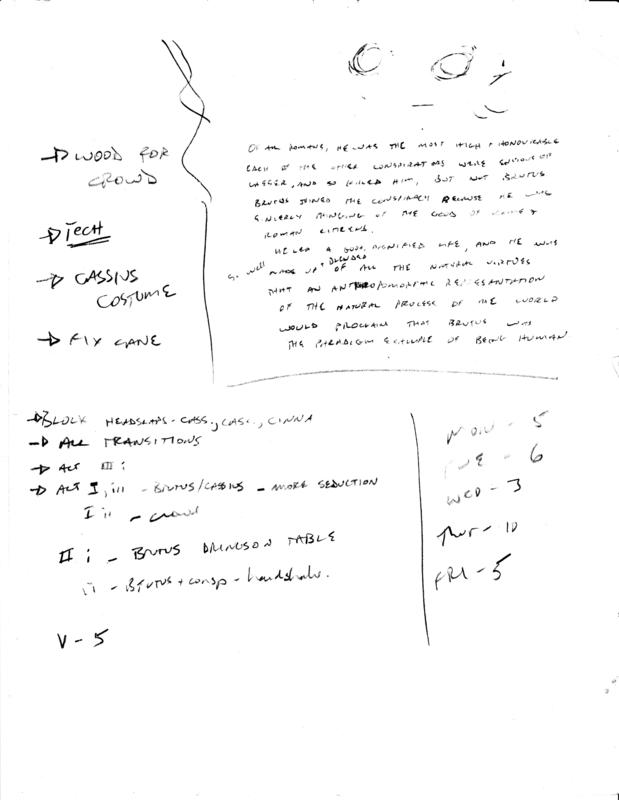 → WOOD FOR
CROWD
→ TECH
→ CASSIUS
COSTUME
→ FIX CANE
OF ALL ROMANS, HE WAS THE MOST HIGH + HONOURABLE
EACH OF THE OTHER CONSPIRATORS WERE ENVIOUS OF
CAESAR, AND SO KILLED HIM, BUT NOT BRUTUS
BRUTUS JOINED THE CONSPIRACY BECAUSE HE WAS
THINKING OF THE GOOD OF
ROMAN CITIZENS.
HE LED A GOOD, DIGNIFIED LIFE, AND HE WAS
SO WELL MADE UP + BLENDED OF ALL THE NATURAL VIRTUES
THAT AN ANTHROPOMORPHIC REPRESENTATION
OF THE NATURAL PROCESS OF THE WORLD
WOULD PROCLAIM THAT BRUTUS WAS
THE PARADIGM EXAMPLE OF BEING HUMAN
→ BLOCK HEADSLAPS - CASS., CASC., CINNA
→ ALL TRANSITIONS
→ ACT III i
→ ACT I, iii - BRUTUS/CASSIUS - MORE SEDUCTION
I ii - crowd
II i - BRUTUS ON TABLE
ii - BRUTUS + consp - handshake.
V - 5
MON - 5
TUE - 6
WED - 3
THUR - 10
FRI - 5